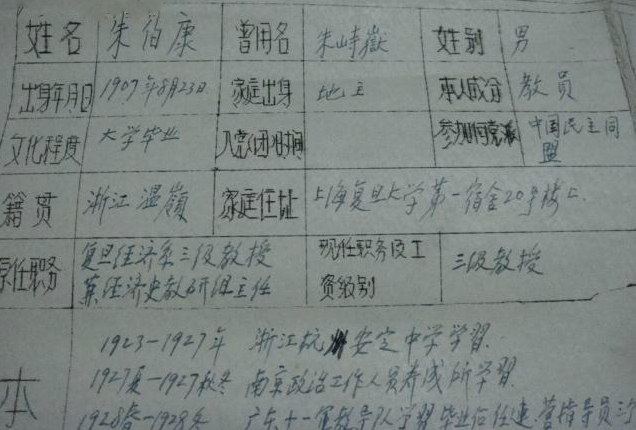 姓名 朱伯康 曾用名 朱峙嶽 姓别 男
出身年月日 1907年8月23日 家庭出身 地主 本人成分 教员
文化程度 大学毕业 入党(团)时间 参加何党派 中国民主同盟
籍贯 浙江温嶺 家庭住址 上海复旦大学第一宿舍20号楼上
原任职务 复旦经济系三级教授 兼经济史教研组主任 现任职务及工资级别 三级教授
1923-1927年 浙江杭州安定中学学習.
1927夏-1927秋冬 南京政治工作人员养成所学習.
本 1928春-1928冬 广东十一軍教导队学習毕业后任連、营指导员